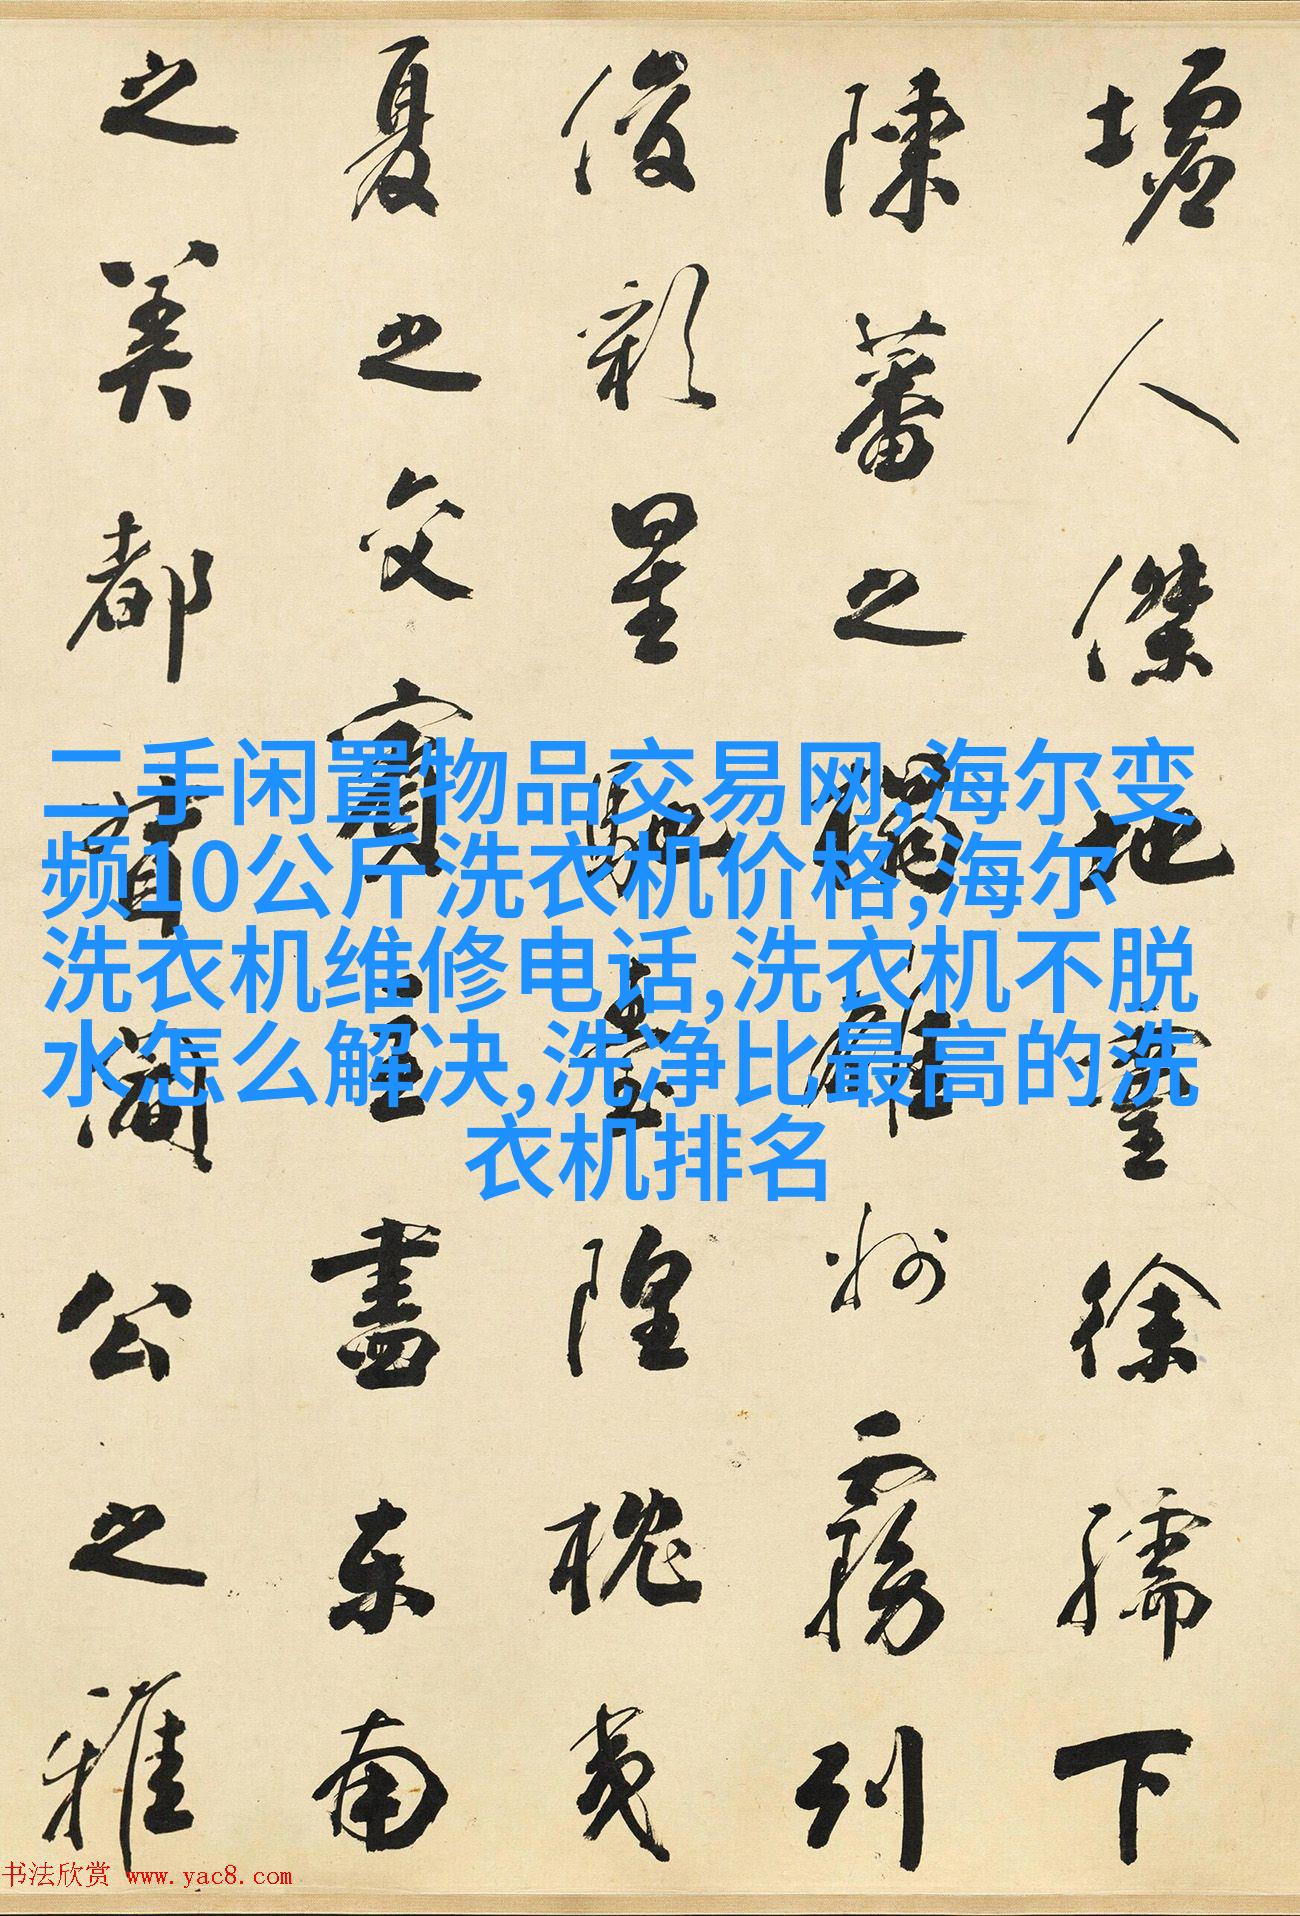 墟人傑地靈徐孺下
陳蕃之榻雄州霧列
俊彩星馳臺隍枕夷
夏之交賓主盡東南
之美都督閻公之雅
二手闲置物品交易网,海尔变
频10公斤洗衣机价格,海尔
洗衣机维修电话,洗衣机不脱
水怎么解决,洗净比最高的洗
衣机排名
书法欣赏 www.yac8.com